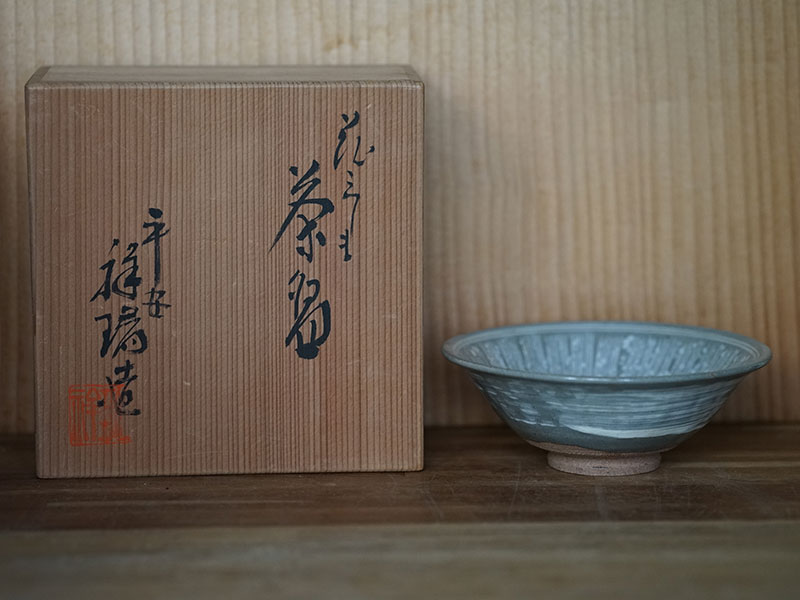 花三島
茶碗
平安
祥瑞造